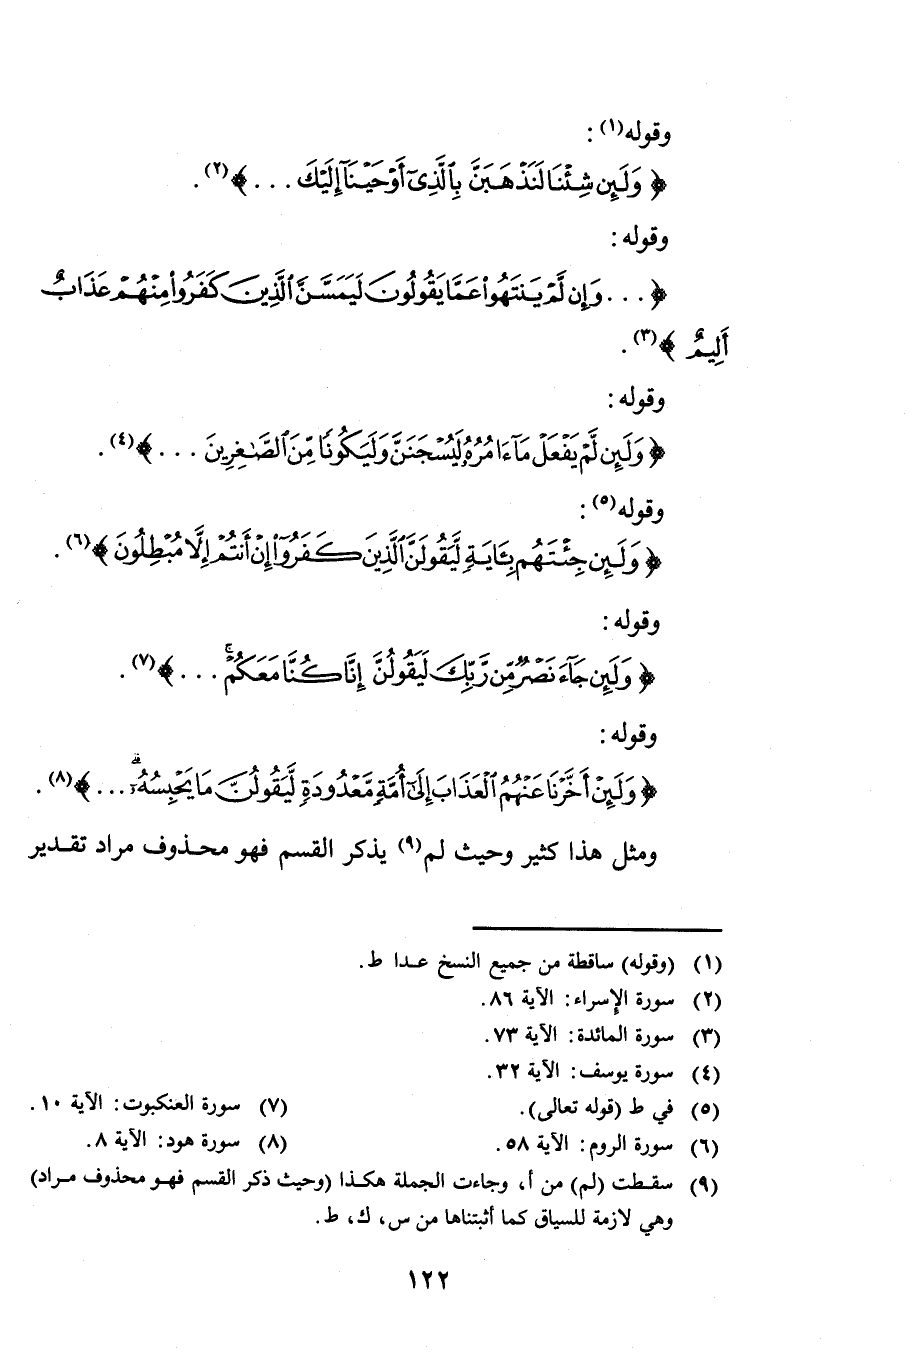 وقوله(١) :
﴿ وَلَئِن شِئْنَا لَنَذْهَبَنَّ بِٱلَّذِىٓ أَوْحَيْنَآ إِلَيْكَ ... ﴾(٢) .
وقوله :
﴿ ... وَإِن لَّمْ يَنتَهُوا۟ عَمَّا يَقُولُونَ لَيَمَسَّنَّ ٱلَّذِينَ كَفَرُوا۟ مِنْهُمْ عَذَابٌ
أَلِيمٌ ﴾(٣) .
وقوله :
﴿ وَلَئِن لَّمْ يَفْعَلْ مَآ ءَامُرُهُۥ لَيُسْجَنَنَّ وَلَيَكُونًا مِّنَ ٱلصَّـٰغِرِينَ ... ﴾(٤) .
وقوله(٥) :
﴿ وَلَئِن جِئْتَهُم بِـَٔايَةٍ لَّيَقُولَنَّ ٱلَّذِينَ كَفَرُوٓا۟ إِنْ أَنتُمْ إِلَّا مُبْطِلُونَ ﴾(٦) .
وقوله :
﴿ وَلَئِن جَآءَ نَصْرٌ مِّن رَّبِّكَ لَيَقُولُنَّ إِنَّا كُنَّا مَعَكُمْ ۚ ... ﴾(٧) .
وقوله :
﴿ وَلَئِنْ أَخَّرْنَا عَنْهُمُ ٱلْعَذَابَ إِلَىٰٓ أُمَّةٍ مَّعْدُودَةٍ لَّيَقُولُنَّ مَا يَحْبِسُهُۥٓ ۗ ... ﴾(٨) .
ومثل هذا كثير وحيث لم(٩) يذكر القسم فهو محـذوف مراد تقـدير
(١) (وقوله) ساقطة من جميع النسخ عـدا ط.
(٢) سورة الإسراء: الآية ٨٦.
(٣) سورة المائدة: الآية ٧٣.
(٤) سورة يوسف: الآية ٣٢.
(٥) في ط (قوله تعالى).
(٦) سورة الروم: الآية ٥٨.
(٧) سورة العنكبوت: الآية ١٠.
(٨) سورة هود: الآية ٨.
(٩) سقـطت (لم) من أ، وجاءت الجملة هكـذا (وحيث ذكر القسم فهـو محذوف مـراد)
وهي لازمة للسياق كما أثبتناها من س، ك، ط.
١٢٢